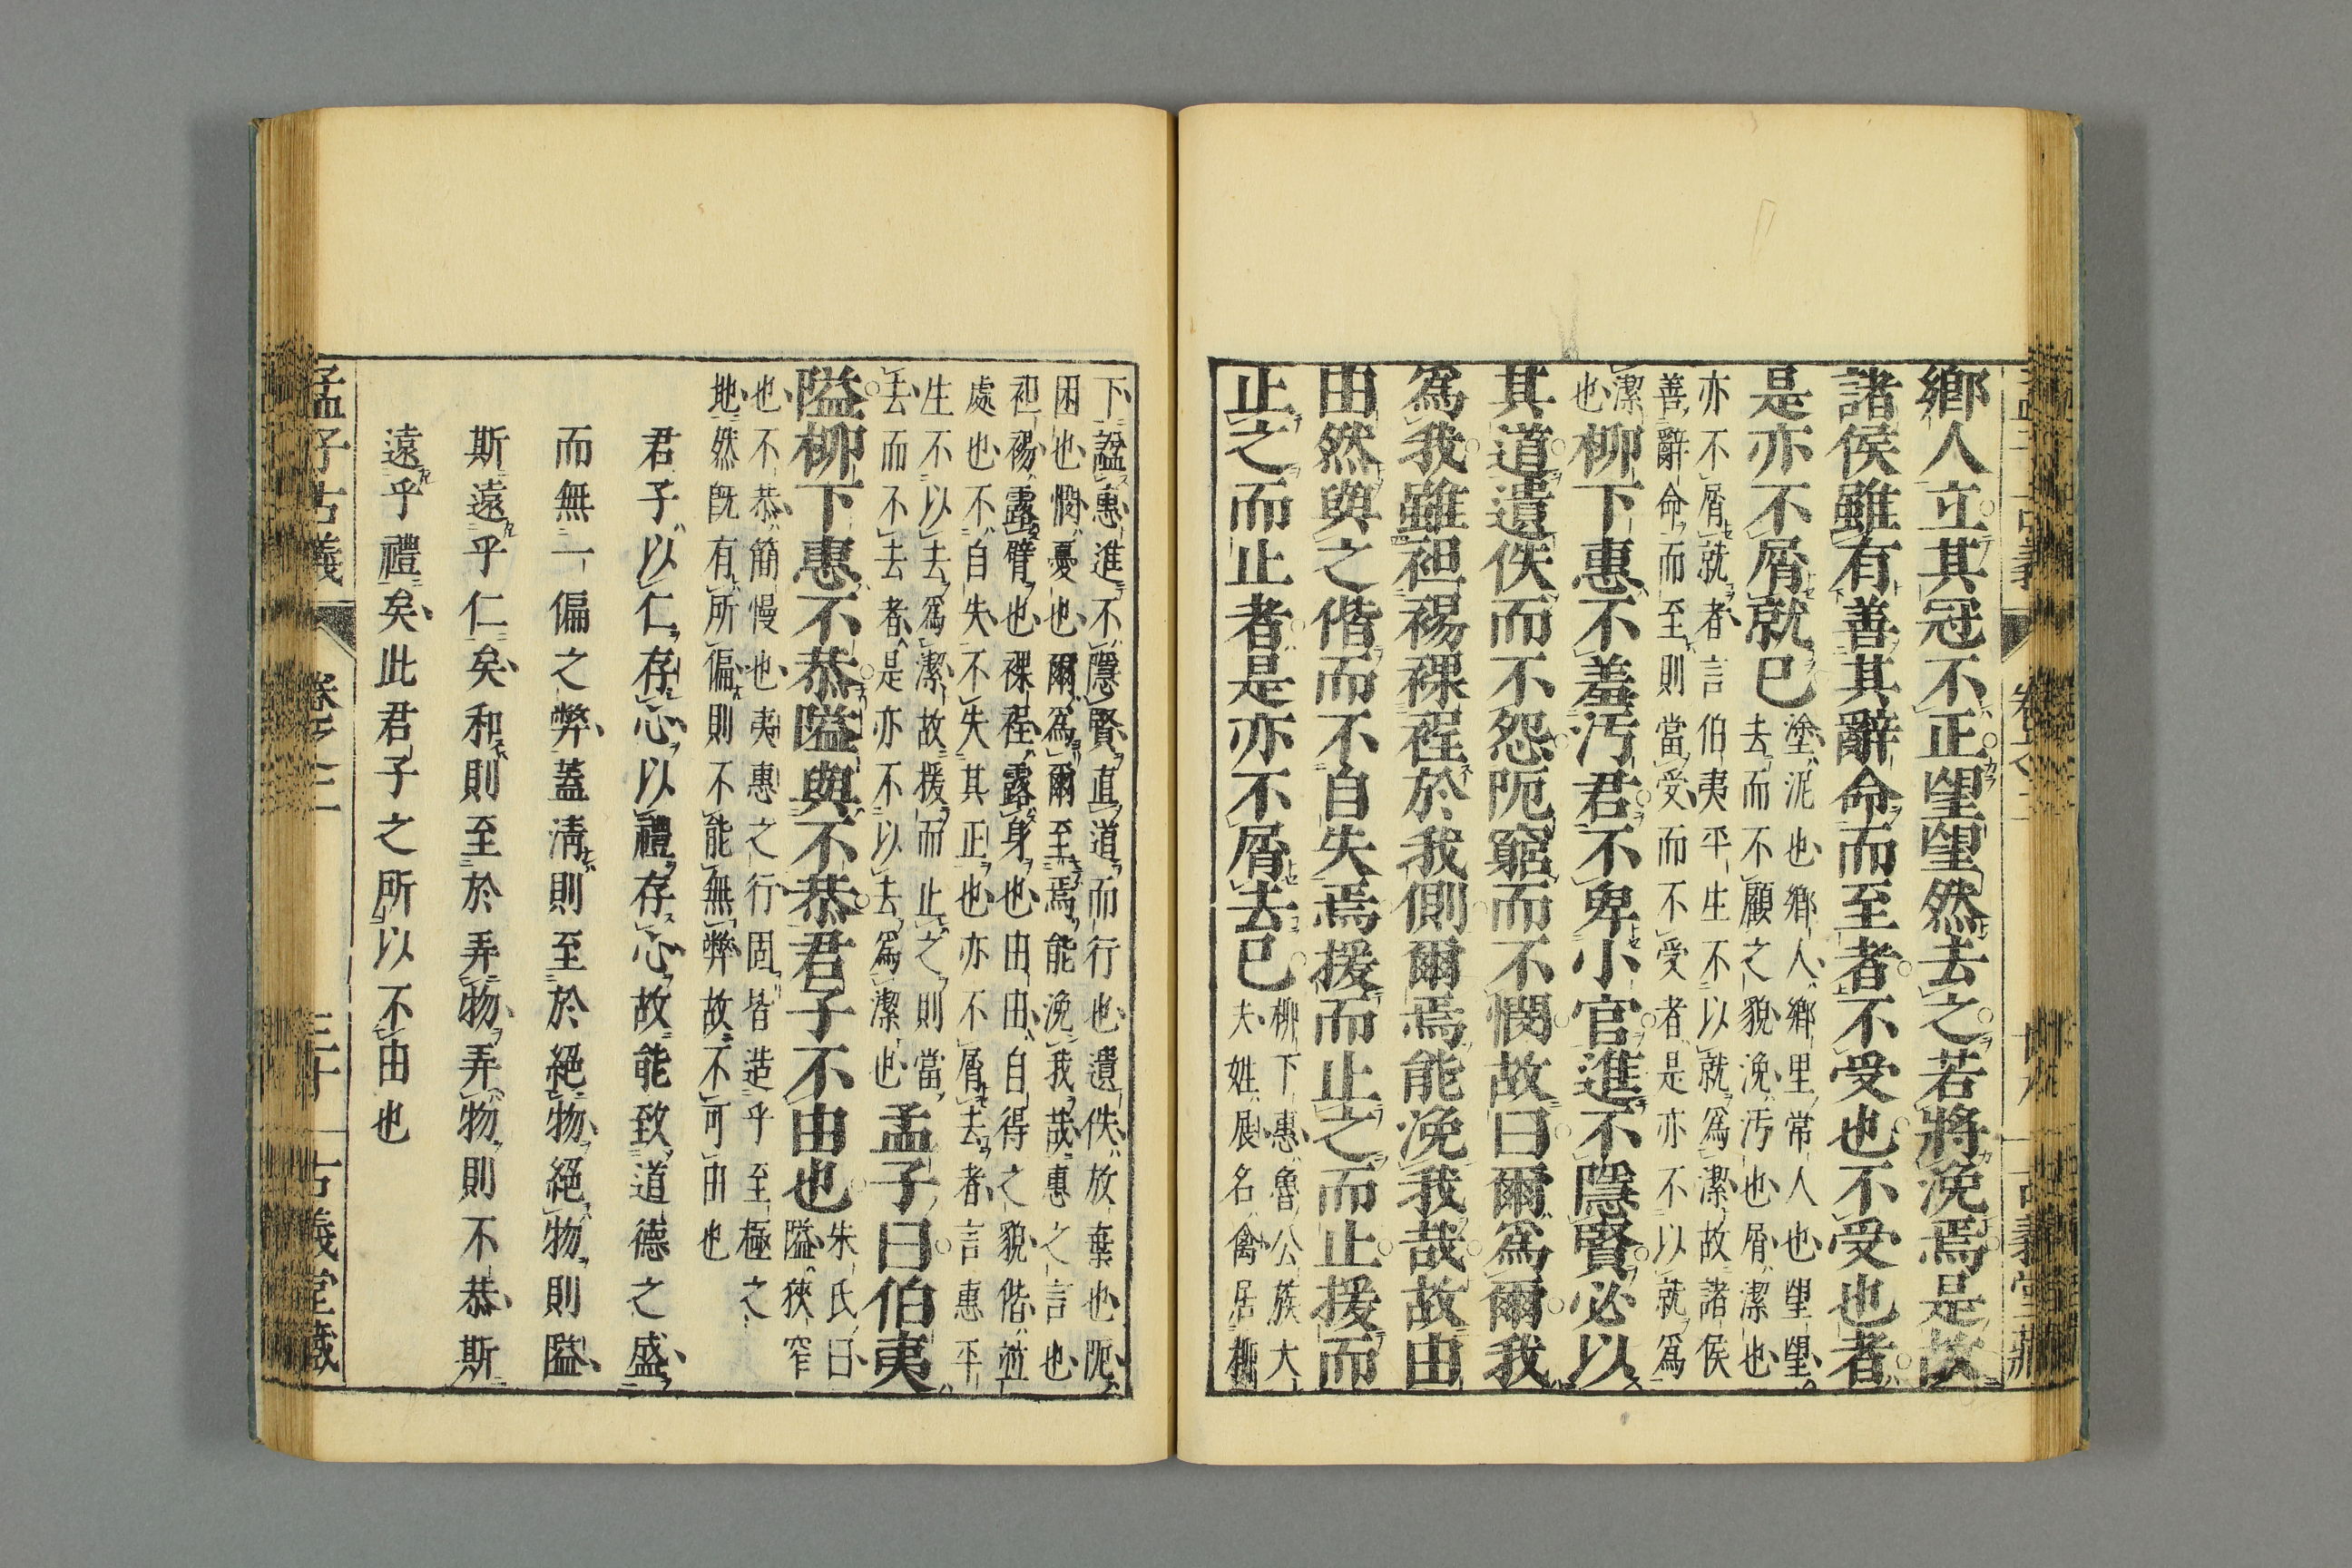 鄉人立其冠不正望望然去之若將浼焉是故
諸侯雖有善其辭命而至者不受也不受也者
是亦不屑就已
塗泥也鄉人鄉里常人也望望
去而不顧之貌浼汚也屑潔也
亦不屑就者言伯夷平生不以就爲潔故諸侯
善辭命而至則當受而不受者是亦不以就爲
潔
也
柳下惠不羞汚君不卑小官進不隱賢必以
其道遺佚而不怨阨窮而不憫故曰爾爲爾我
爲我雖袒裼裸裎於我側爾焉能浼我哉故由
由然與之偕而不自失焉援而止之而止援而
止之而止者是亦不屑去已
柳下惠魯公族大
夫姓展名禽居柳
下謚惠進不隱賢直道而行也遺佚放棄也阨
困也憫憂也爾爲爾至焉能浼我哉惠之言也
袒裼露臂也裸裎露身也由由自得之貌偕竝
處也不自失不失其正也亦不屑去者言惠平
生不以去爲潔故援而止之則當
去而不去者是亦不以去爲潔也
孟子曰伯夷
隘柳下惠不恭隘與不恭君子不由也
朱氏曰
隘狹窄
也不恭簡慢也夷惠之行固皆造乎至極之
地然旣有所偏則不能無弊故不可由也
君子以仁存心以禮存心故能致道德之盛
而無一偏之弊蓋淸則至於絕物絕物則隘
斯遠乎仁矣和則至於弄物弄物則不恭斯
遠乎禮矣此君子之所以不由也
孟子古義
卷之二
三十
古義堂藏